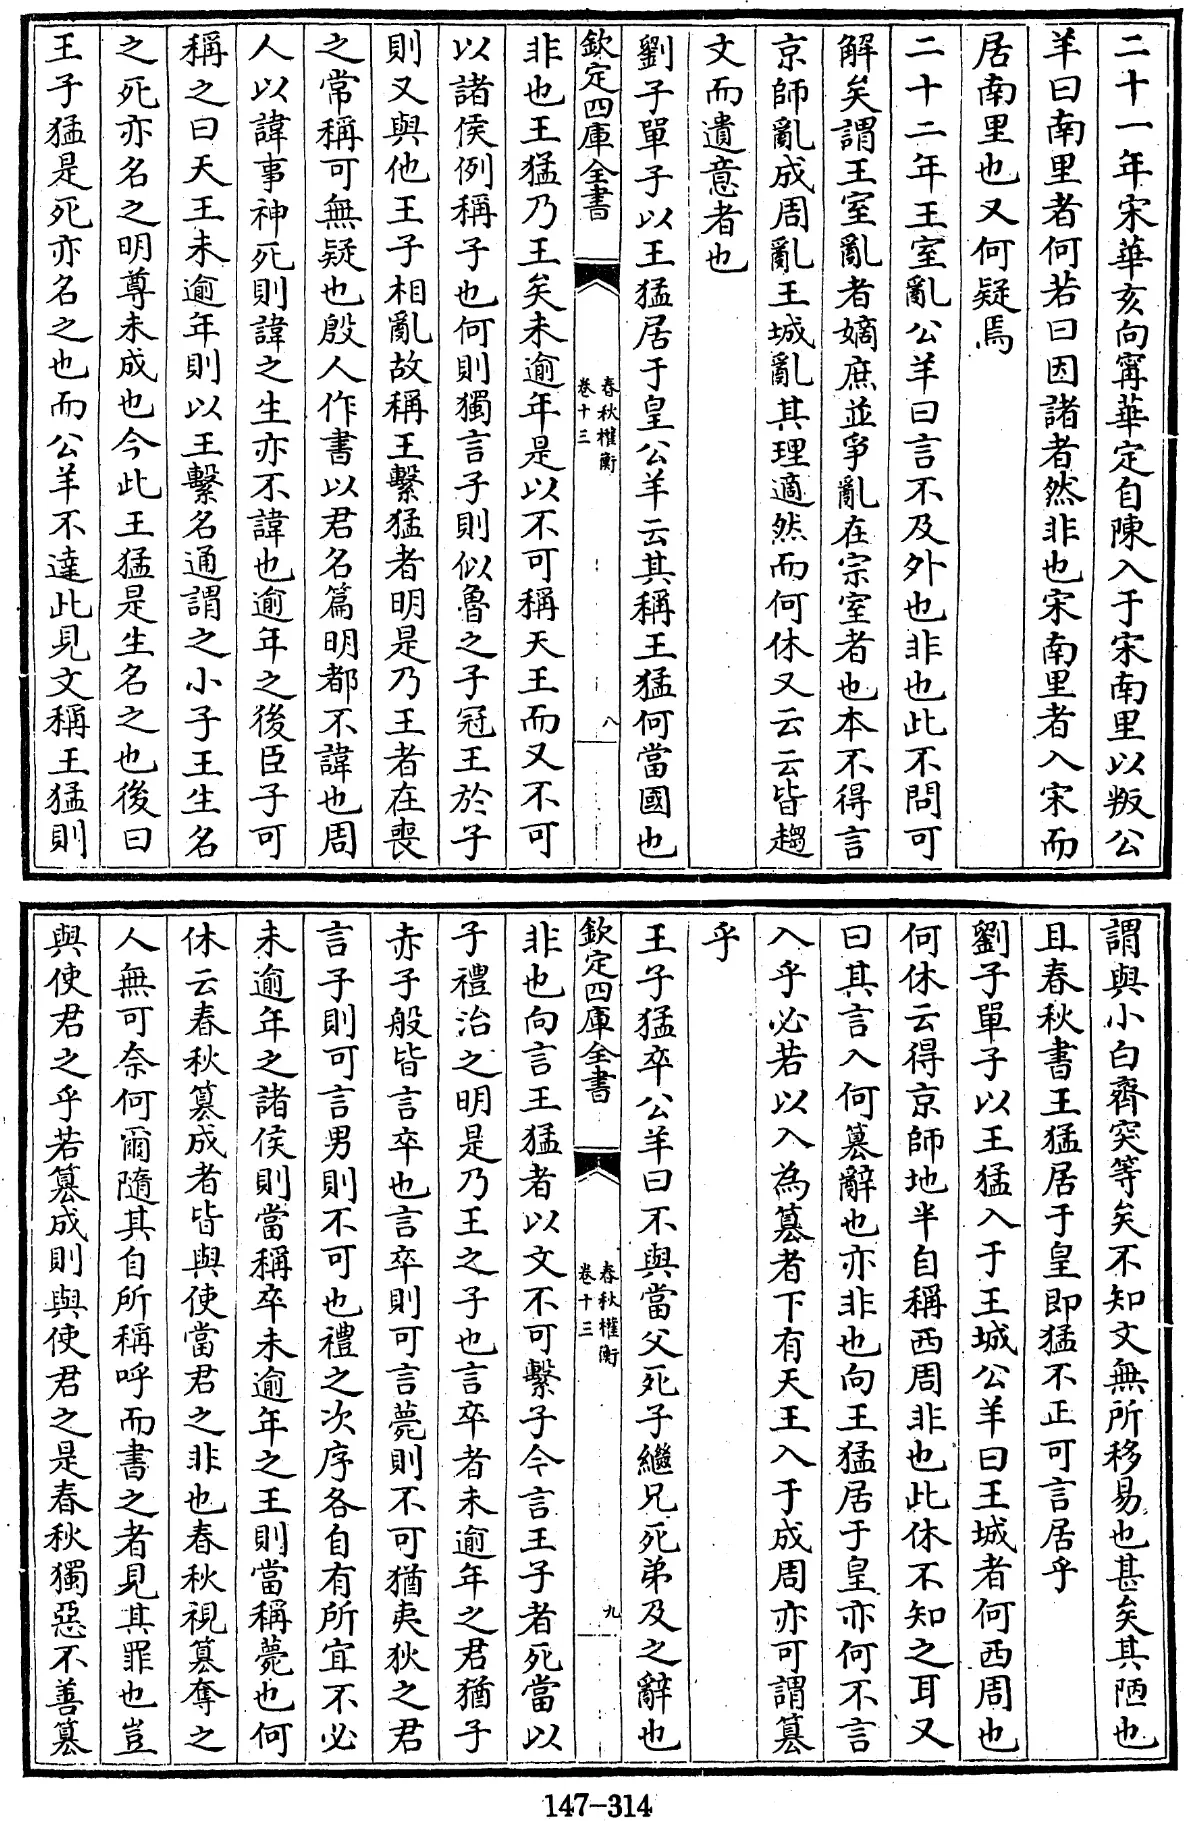 二十一年宋華亥向甯華定自陳入于宋南里以叛公
羊曰南里者何若曰因諸者然非也宋南里者入宋而
居南里也又何疑焉
二十二年王室亂公羊曰言不及外也非也此不問可
解矣謂王室亂者嫡庶並爭亂在宗室者也本不得言
京師亂成周亂王城亂其理適然而何休又云云皆趨
文而遺意者也
劉子單子以王猛居于皇公羊云其稱王猛何當國也
欽定四庫全書
春秋權衡
卷十三
八
非也王猛乃王矣未逾年是以不可稱天王而又不可
以諸侯例稱子也何則獨言子則似魯之子冠王於子
則又與他王子相亂故稱王繫猛者明是乃王者在喪
之常稱可無疑也殷人作書以君名篇明都不諱也周
人以諱事神死則諱之生亦不諱也逾年之後臣子可
稱之曰天王未逾年則以王繫名通謂之小子王生名
之死亦名之明尊未成也今此王猛是生名之也後曰
王子猛是死亦名之也而公羊不達此見文稱王猛則
謂與小白齊突等矣不知文無所移易也甚矣其陋也
且春秋書王猛居于皇即猛不正可言居乎
劉子單子以王猛入于王城公羊曰王城者何西周也
何休云得京師地半自稱西周非也此休不知之耳又
曰其言入何篡辭也亦非也向王猛居于皇亦何不言
入乎必若以入為篡者下有天王入于成周亦可謂篡
乎
王子猛卒公羊曰不與當父死子繼兄死弟及之辭也
欽定四庫全書
春秋權衡
卷十三
九
非也向言王猛者以文不可繫子今言王子者死當以
子禮治之明是乃王之子也言卒者未逾年之君猶子
赤子般皆言卒也言卒則可言薨則不可猶夷狄之君
言子則可言男則不可也禮之次序各自有所宜不必
未逾年之諸侯則當稱卒未逾年之王則當稱薨也何
休云春秋篡成者皆與使當君之非也春秋視篡奪之
人無可奈何爾隨其自所稱呼而書之者見其罪也豈
與使君之乎若篡成則與使君之是春秋獨惡不善篡
147-314